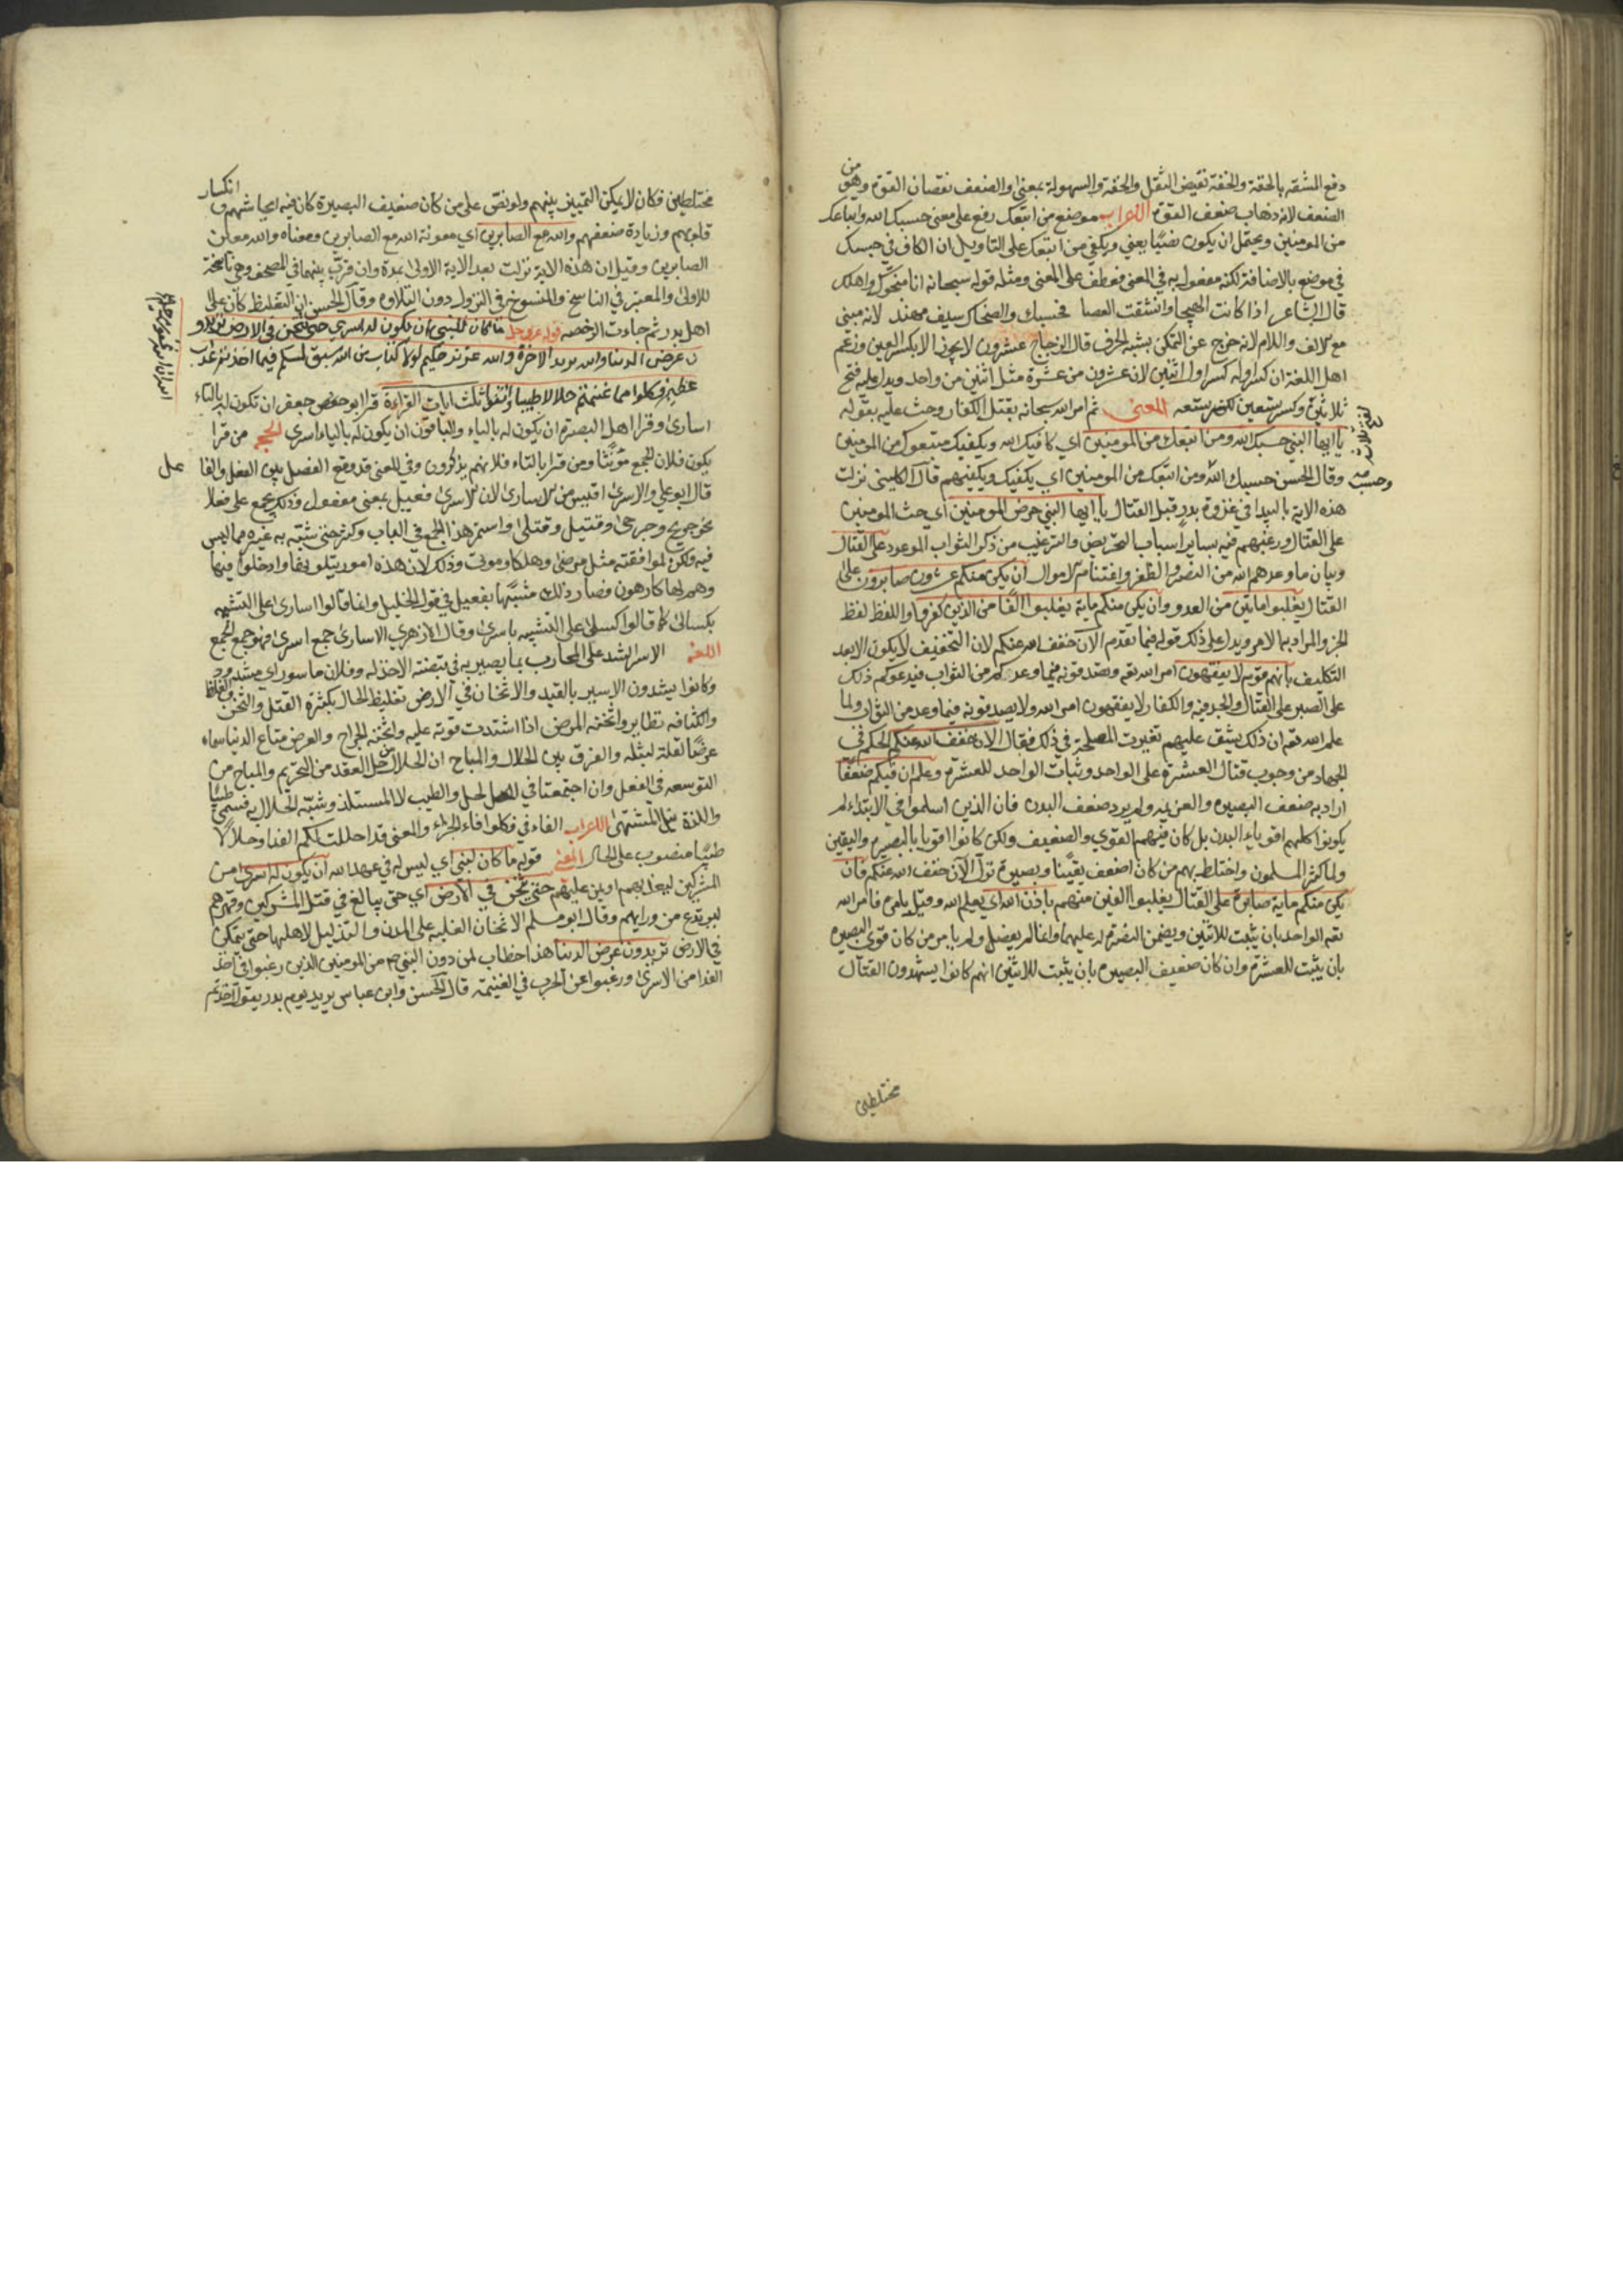 دفع المشقه بالخفة والخفة نقيض الثقل والخفة والسهولة بمعنى والضعف نقصان القوة وهو من
الضعف لانه ذهاب ضعف القوة الاعراب موضع من اتبعك رفع على معنى حسبك الله واتباعك
من المومنين ويحتمل ان يكون نصبًا بمعنى ويكفي من اتبعك على التاويل ان الكاف في حسبك
في موضع بالاضافة لكنه مفعول به في المعنى فعطف على المعنى ومثله قوله سبحانه انا منجوك واهلك
قال الشاعر اذا كانت الهيجا وانشقت العصا فحسبك والضحاك سيف مهند لانه مبنى
مع الالف واللام لانه خرج عن التمكن بشبه الحرف قال الزجاج عشرون لا يجوز الا بكسر العين وزعم
اهل اللغة ان كسر اوله كسر اول اثنين لان عشرون من عشرة مثل اثنين من واحد ويدل عليه فتح
ثلاثين وكسر تسعين لكسر تسعه المعنى ثم امر الله سبحانه بقتل الكفار وحث عليه بقوله
يا ايها النبي حسبك الله ومن اتبعك من المومنين اي كافيك الله ويكفيك متبعوك من المومنين
وقال الحسن حسبك الله ومن اتبعك من المومنين اي يكفيك ويكفيهم قال الكلبي نزلت
هذه الاية بالبيدا في غزوة بدر قبل القتال يا ايها النبي حرض المومنين اي حث المومنين
على القتال ورغبهم فيه بساير اسباب التحريض والترغيب من ذكر الثواب الموعود على القتال
وبيان ما وعدهم الله من النصر والظفر واغتنام الاموال ان يكن منكم عشرون صابرون على
القتال يغلبوا مايتين من العدو وان يكن منكم ماية يغلبوا الفًا من الذين كفروا واللفظ لفظ
الخبر والمراد به الامر ويدل على ذلك قوله فيما تقدم الان خفف الله عنكم لان التخفيف لا يكون الا بعد
التكليف بانهم قوم لا يفقهون امر الله تعه وتصدقونه فيما وعدكم من الثواب فيدعوكم ذلك
على الصبر على القتال والجد فيه والكفار لا يفقهون امر الله ولا يصدقونه فيما وعد من الثواب ولما
علم الله تعه ان ذلك يشق عليهم تغيرت المصلحة في ذلك فقال الان خفف الله عنكم الحكم في
الجهاد من وجوب قتال العشرة على الواحد وثبات الواحد للعشرة وعلم ان فيكم ضعفًا
اراد به ضعف البصيره والعزيمه ولم يرد ضعف البدن فان الذين اسلموا في الابتداء لم
يكونوا كلهم اقوياء البدن بل كان فيهم القوي والضعيف ولكن كانوا اقويا بالبصيرة واليقين
ولما كثر المسلمون واختلط بهم من كان اضعف يقينًا وبصيرة نزل الآن خفف الله عنكم فان
يكن منكم ماية صابرة على القتال يغلبوا الفين منهم باذن الله اي بعلم الله وقيل بامره فامر الله
تعه الواحد بان يثبت للاثنين ويضمن النصرة له عليهما وانما لم يفضل ولم يامر من كان قوى البصيره
بان يثبت للعشرة وان كان ضعيف البصيره بان يثبت للاثنين انهم كانوا يشهدون القتال
مختلطين
مختلطين فكان لا يمكن التمييز بينهم ولو نص على من كان ضعيف البصيرة كان فيه ايحاشهم و انكسار
قلوبهم وزيادة ضعفهم والله مع الصابرين اي معونة الله مع الصابرين ومعناه والله معلن
الصابرين وقيل ان هذه الاية نزلت بعد الاية الاولى بمدة وان قرن بينهما في المصحف وهي ناسخة
للاولى والمعتبر في الناسخ والمنسوخ في النزول دون التلاوه وقال الحسن ان التغليظ كان على
اهل بدر ثم جاءت الرخصه قوله عز وجل ما كان للنبي ان يكون له اسرى حتى يثخن في الارض تريدو
ن عرض الدنيا والله يريد الاخرة والله عزيز حكيم لولا كتاب من الله سبق لمسكم فيما اخذتم عذاب
عظيم فكلوا مما غنمتم حلالا طيبا واتقوا ثلث ايات القراءة قرا ابو حفص جعفر ان تكون له بالتاء
ان الله غفور رحيم
اسارى وقرا اهل البصرة ان يكون له بالياء والباقون ان يكون له بالياء اسرى الحجه من قرا
يكون فلان الجمع مؤنثًا ومن قرا بالتاء فلانهم يذكرون وفي المعنى قد وقع الفصل بين الفعل والفا
عل
قال ابو علي والاسرى اقيس من الاسارى لان الاسرى فعيل بمعنى مفعول وذلك يجمع على فعلا
نحو جريح وجرحى وقتيل وقتلى واستمر هذا الجمع في الباب وكثر حتى شبه به غيره مما ليس
فيه ولكن لموافقته مثل مرضى وهلكا وموتى وذلك لان هذه امور يبتلو بها وادخلوا فيها
وهم لها كارهون فصار ذلك مشبهًا بفعيل في قول الخليل وانما قالوا اسارى على التشبيه
بكسالى كما قالوا كسلى على التشبيه باسرى وقال الازهري الاسارى جمع اسرى فهو جمع الجمع
اللغه الاسر الشد على المحارب بما يصير به في قبضة الاخذ له وفلان ماسور اي مشدود
وكانوا يشدون الاسير بالقيد والاثخان في الارض تغليظ الحال بكثرة القتل والثخن والغلظ
والكثافه نظاير واثخنه المرض اذا اشتدت قوته عليه واثخنه الجراح والعرض متاع الدنيا سماه
عرضًا لقلة لبثه والفرق بين الحلال والمباح ان الحلال من حل العقد من التحريم والمباح من
التوسعه في الفعل وان اجتمعتا في الحل والطيب لا المستلذ وشبه الحلال به فسمى طيبًا
واللذة نيل المشتهى الاعراب الفاء في فكلوا فاء الجزاء والمعنى قد احللت لكم الفدا وحلالًا
طيبًا منصوب على الحال المعنى قوله ما كان لنبي اي ليس له في عهد الله ان يكون له اسرى من
المشركين ليفديهم او يمن عليهم حتى يثخن في الارض اي حتى يبالغ في قتل المشركين وقهرهم
ليرتدع من ورايهم وقال ابو مسلم الاثخان الغلبه على المدن والتذليل لاهلها حتى يتمكن
في الارض تريدون عرض الدنيا هذا خطاب لمن دون النبي صم من المومنين الذين رغبوا في اخذ
الفدا من الاسرى ورغبوا عن الحرب في الغنيمة قال الحسن وابن عباس يريد يوم بدر يقول اخذتم